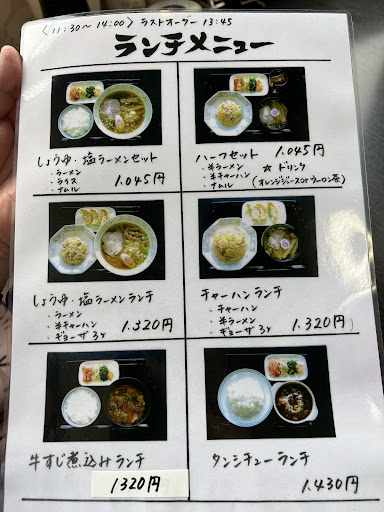 〈11:30〜14:00〉ラストオーダー 13:45
ランチメニュー
しょうゆ・塩ラーメンセット
・ラーメン
・ライス
・ナムル
1.045円
ハーフセット 1.045円
・半ラーメン
・半チャーハン
・ナムル
☆ ドリンク
(オレンジジュースorウーロン茶)
しょうゆ・塩ラーメンランチ
・ラーメン
・半チャーハン
・ギョーザ3ヶ
1.320円
チャーハンランチ
・チャーハン
・半ラーメン
・ギョーザ3ヶ
1.320円
牛すじ煮込みランチ
1320円
タンシチューランチ
1.430円